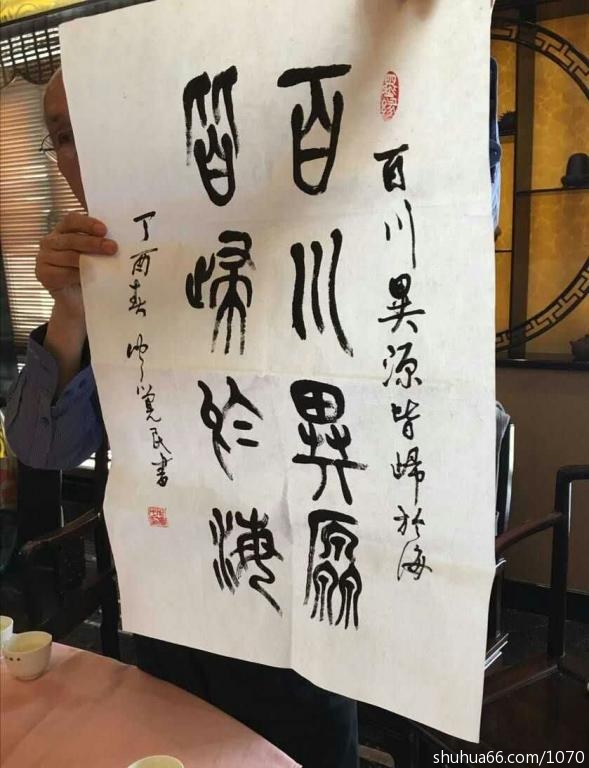 百川異源皆歸於海
百川異原
皆歸於海
丁酉春 覺民書
shuhua66.com/1070